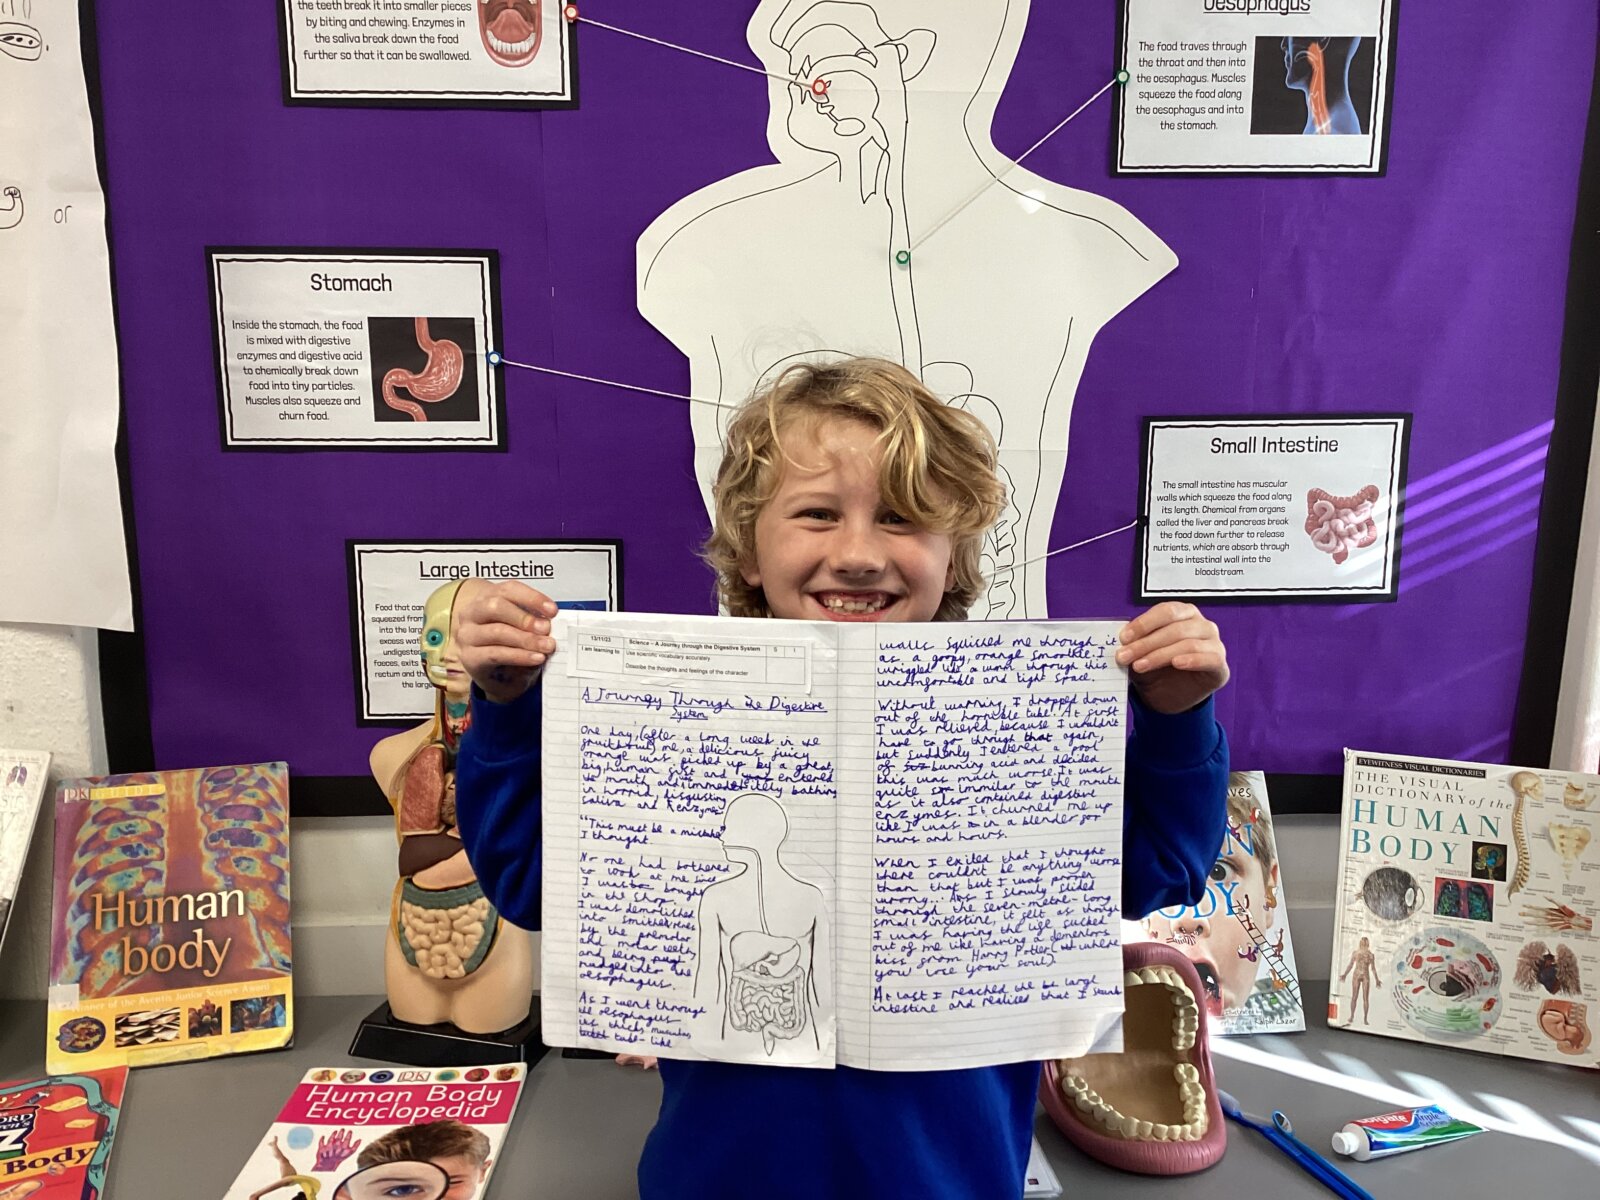 the teeth break it into smaller pieces
by biting and chewing. Enzymes in
the saliva break down the food
further so that it can be swallowed.
Oesophagus
The food traves through
the throat and then into
the oesophagus. Muscles
squeeze the food along
the oesophagus and into
the stomach.
or
Stomach
Inside the stomach, the food
is mixed with digestive
enzymes and digestive acid
to chemically break down
food into tiny particles.
Muscles also squeeze and
churn food.
Small Intestine
The small intestine has muscular
walls which squeeze the food along
its length. Chemical from organs
called the liver and pancreas break
the food down further to release
nutrients, which are absorb through
the intestinal wall into the
bloodstream.
Large Intestine
Food that can
squeezed from
into the larg
excess wat
undigeste
faeces, exits
rectum and th
the large
13/11/23 Science – A Journey through the Digestive System S I
I am learning to Use scientific vocabulary accurately
Describe the thoughts and feelings of the character
A Journey Through the Digestive
System
One day, (after a long week in the
fruitbowl) me, a delicious juicy
orange was picked up by a great,
big human fist and was entered
the mouth. I was immedesitley bathing
in horrid, disgusting
saliva and enzymes.
"This must be a mistake"
I thought.
No one had bothered
to look at me since
I was bought
in the shop.
I was demolished
into smithereens
by the premolar
and molar teeth
and being
nudged into the
oesophagus.
As I went through
the oesophagus
its thick, muscular,
tube-like
walls squished me through it
as a goopy, orange smoothie. I
wriggled like a worm through this
uncomfortable and tight space.
Without warning, I dropped down
out of the horrible tube. At first
I was relieved, because I wouldn't
have to go through that again,
but suddenly I entered a pool
of burning acid and decided
this was much worse. It was
quite simmilar to the mouth
as it also contained digestive
enzymes. It churned me up
like I was in a blender for
hours and hours.
When I exited that I thought
there couldn't be anything worse
than that but I was proven
wrong... As I slowly slided
through the seven-metre-long
small intestine, it felt as though
I was having the life sucked
out of me like having a dementors
kiss from Harry Potter (where
you lose your soul).
At last I reached the large
intestine and realised that I stank
DK GUIDE
Human
body
Winner of the Aventis Junior Science Award
DK
Human Body
Encyclopedia
Body
EYEWITNESS VISUAL DICTIONARIES
THE VISUAL
DICTIONARY of the
HUMAN
BODY
BODY
Ralph Lazar
Colgate